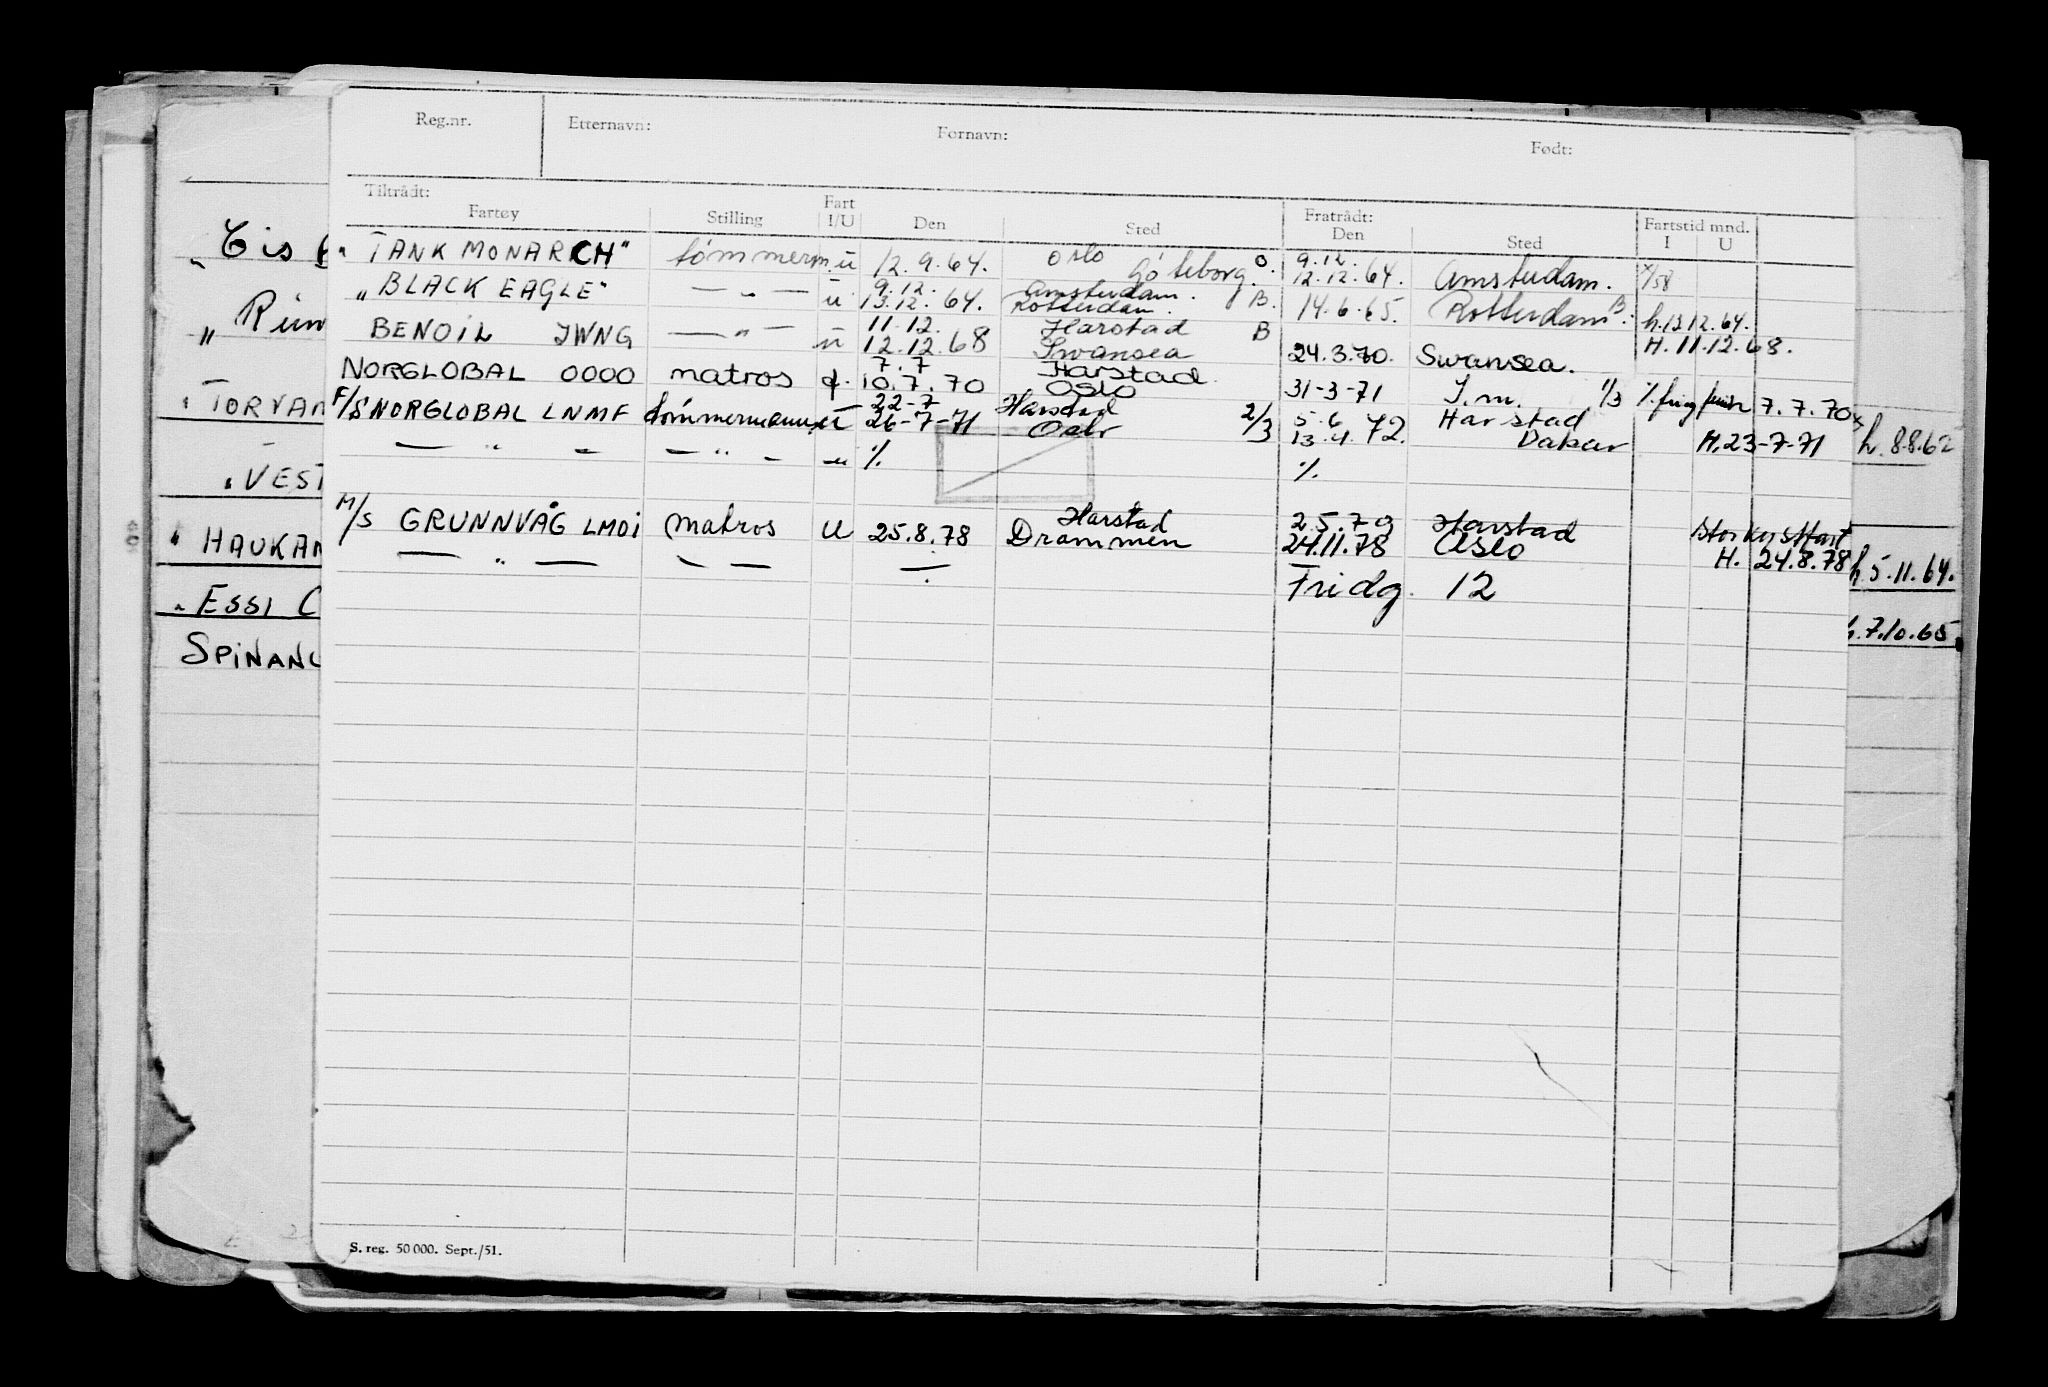 Reg.nr. Etternavn: Fornavn: Født:
Tiltrådt: Fratrådt: Fartstid mnd.
Fartøy Stilling Fart I/U Den Sted Den Sted I U
„TANK MONARCH" tømmerm. u 12.9.64. Oslo Göteborg. O. 9.12. 12.12.64. Amsterdam.
„BLACK EAGLE" — „ — u 9.12. 13.12.64. Amsterdam. Rotterdam. B. 14.6.65. Rotterdam B. h.13.12.64.
BENOIL JWNG — " — u 11.12. 12.12.68 Harstad Swansea B 24.3.70. Swansea. H. 11.12.68.
NORGLOBAL 0000 matros 7.7 10.7.70 Harstad Oslo 31-3-71 1/3 7.7.70
F/S NORGLOBAL LNMF tømmermann u 22-7 26-7-71 Harstad Oslo 2/3 5.6 13.4.72. Harstad Dakar H. 23-7-71
— " — — " — — " %. %.
M/S GRUNNVÅG LMOI matros U 25.8.78 Harstad Drammen 2.5.79 24.11.78 Harstad Oslo H. 24.8.78
— " —
Fridg. 12
„Cis
„Rim
„TORVAN
„VEST
„HAUKAN
„ESSI C
SPINAN
h. 8.8.62
h. 5.11.64.
h. 7.10.65.
S. reg. 50 000. Sept./51.